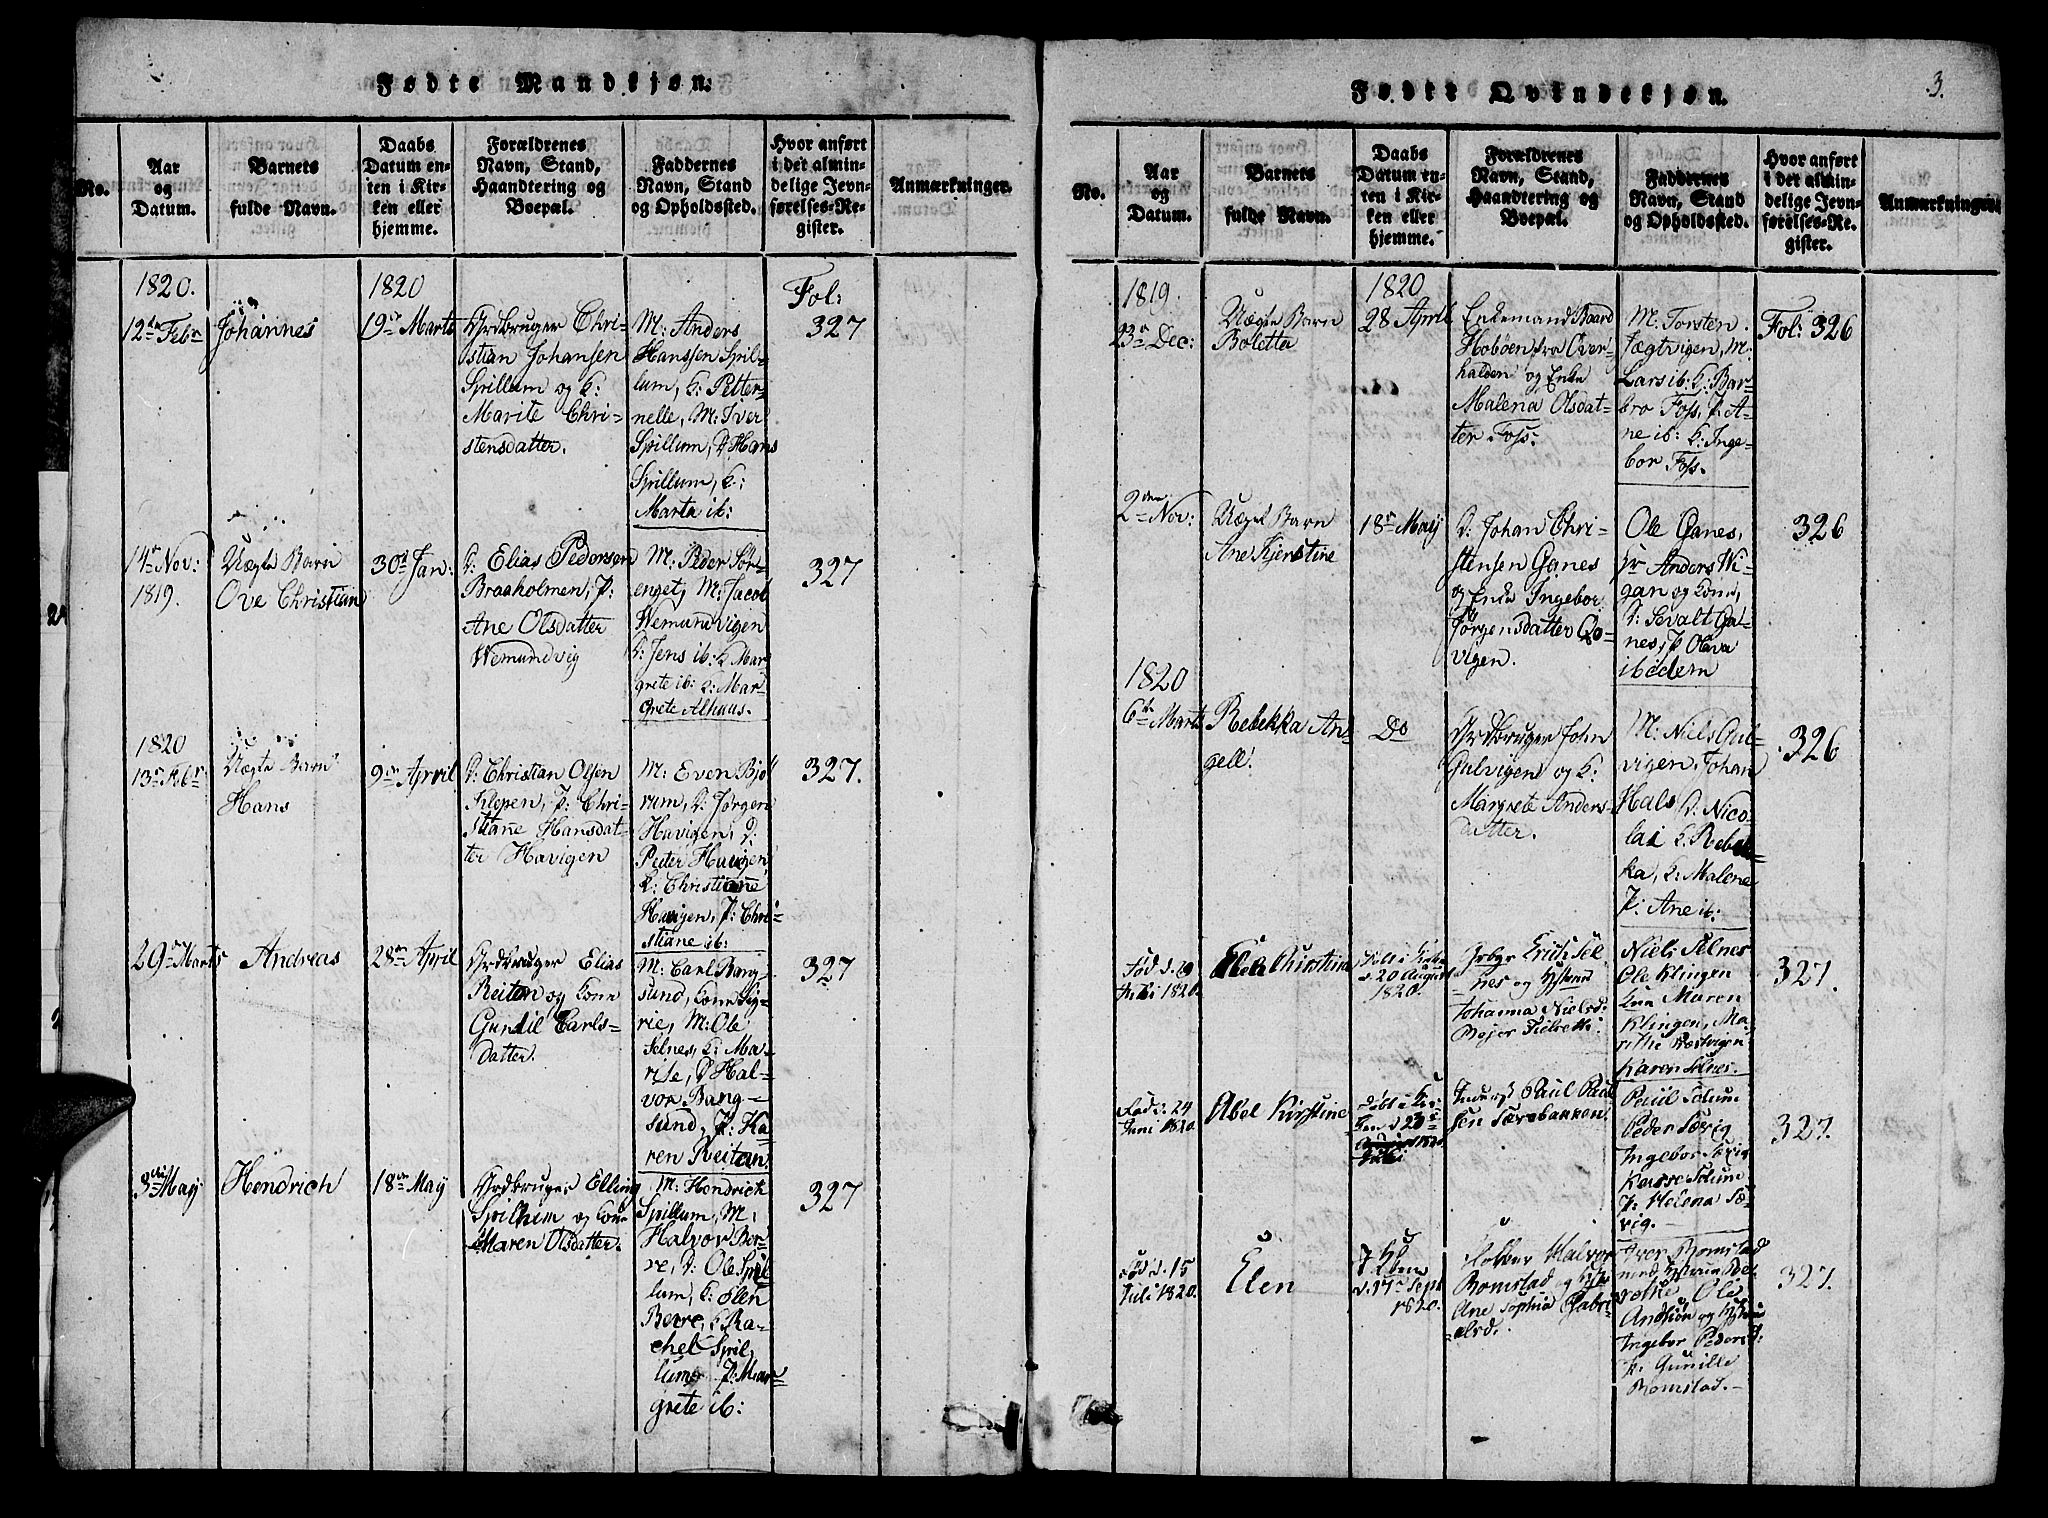 Fødte Mandkjøn.
No.
Aar
og
Datum.
Barnets
fulde Navn.
Daabs
Datum en-
ten i Kir-
ken eller
hjemme.
Forældrenes
Navn, Stand,
Haandtering og
Boepæl.
Faddernes
Navn, Stand
og Opholdssted.
Hvor anført
i det almin-
delige Jevn-
førelses-Re-
gister.
Anmærkninger.
1820.
12te Febr
Johannes
1820
19de Marts
Jordbruger Chri-
stian Johansen
Spillum og K:
Marite Chri-
stensdatter.
M: Anders
Hanssen Spil-
lum, K: Petter-
nelle, M: Iver
Spillum, D: Hans
Spillum, K:
Marta ib:
Fol:
327
14de Nov:
1819.
Uægte Barn
Ove Christian
30te Jan:
D: Elias Pedersen
Braaholmen, P:
Ane Olsdatter
Wemundvig
M: Peder Sør-
enget, M: Jacob
Wemundvigen
D: Jens ib: K: Mar-
grete ib: K: Mar-
grete Alhuus.
327
1820
13de Febr:
Uægte Barn
Hans
9de April
D: Christian Olsen
Klepen, P: Chri-
stiane Hansdat-
ter Havigen
M: Even Bjø-
rum, D: Jørgen
Havigen, D:
Peter Havigen,
K: Christiane
Havigen, P: Chri-
stiane ib:
327.
29de Marts
Andreas
28de April
Jordbruger Elias
Reitan og Kone
Gunhil Carls-
datter.
M: Carl Bang-
sund, Kone Sig-
rie, M: Ole
Selnes, K: Ma-
rise, D: Hal-
vor Bang-
sund, P: Ka-
ren Reitan
327
3die May
Hendrich
18de May
Jordbruger Elling
Spillum og Kone
Maren Olsdatter.
M: Hendrich
Spillum, M:
Halvor Ber-
re, D: Ole Spil-
lum, K: Elen
Berre, K: Ra-
chel Spil-
lum, P: Mar-
grete ib:
327
Fødte Qvindekjøn.
3.
No.
Aar
og
Datum.
Barnets
fulde Navn.
Daabs
Datum en-
ten i Kir-
ken eller
hjemme.
Forældrenes
Navn, Stand,
Haandtering og
Boepæl.
Faddernes
Navn, Stand
og Opholdssted.
Hvor anført
i det almin-
delige Jevn-
førelses-Re-
gister.
Anmærkninger.
1819.
23de Dec:
Uægte Barn
Boletta
1820
28 April
Enkemand Baard
Hobøen fra Over-
halden og Enke
Malena Olsdat-
ter Foss:
M: Torsten
Jægtvigen, M:
Lars ib: K: Bar-
bro Foss, P: A-
ne ib: K: Inge-
bor Foss.
Fol: 326
2den Nov:
Uægte Barn
Ane Kjerstine
18de May
D: Johan Chri-
stensen Ganes
og Enke Ingebor
Jørgensdatter Qo-
vigen.
Ole Ganes,
Anders Wi-
gan og Kone,
D: Sevalt Ga-
nes, P: Olava
ibidem
326
1820
6te Marts
Rebekka An-
gell.
Do
Jordbruger John
Gulvigen og K:
Margrete Anders-
datter.
M: Niels Gul-
vigen, Johan
Hals, D: Nico-
lai K: Rebek-
ka, K: Malene
P: Ane ib:
326
Fød d. 19
Juli 1820.
Elen Chirstina
Døbt i Kirken
d. 20 August
1820.
Jorbgr Erich Sel-
nes og Hustrue
Johanna Nielsd.
Niels Selnes
Ole Klingen
Kne Maren
Klingen, Ma-
rithe Kaldvigen
Karen Selnes.
327.
Fød d. 24
Juni 1820.
Abel Kirstine
Døbt i Kir-
ken d 23de
Juli
Inderst Paul Paul-
sen Særsbakken.
Paul Solum
Peder Særvig
Ingebor Særvig
Solum
P: Helena Sær-
vig.
327.
Fød d. 15
Juli 1820.
Elen
d. 17de Sept
1820.
Halvor
Romstad og
Ane Sophia Gabri-
elsd.
Iver Romstad
Ole
Andsiøn og Hustrue
Ingebor Pedersd:
P: Gunille
Romstad.
327.